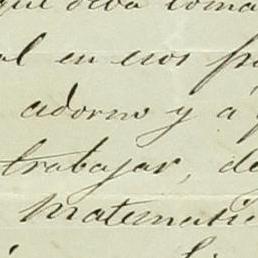 que deba toma
al en esos pa
adorno y á
trabajar, de
matematic